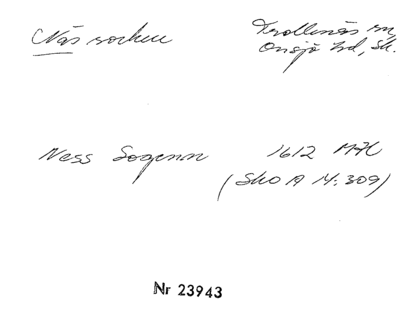 Näs socken
Trollenäs sn,
Onsjö hd, Sk.
Ness Sogenn 1612 MH
(SkoA M: 309)
Nr 23943